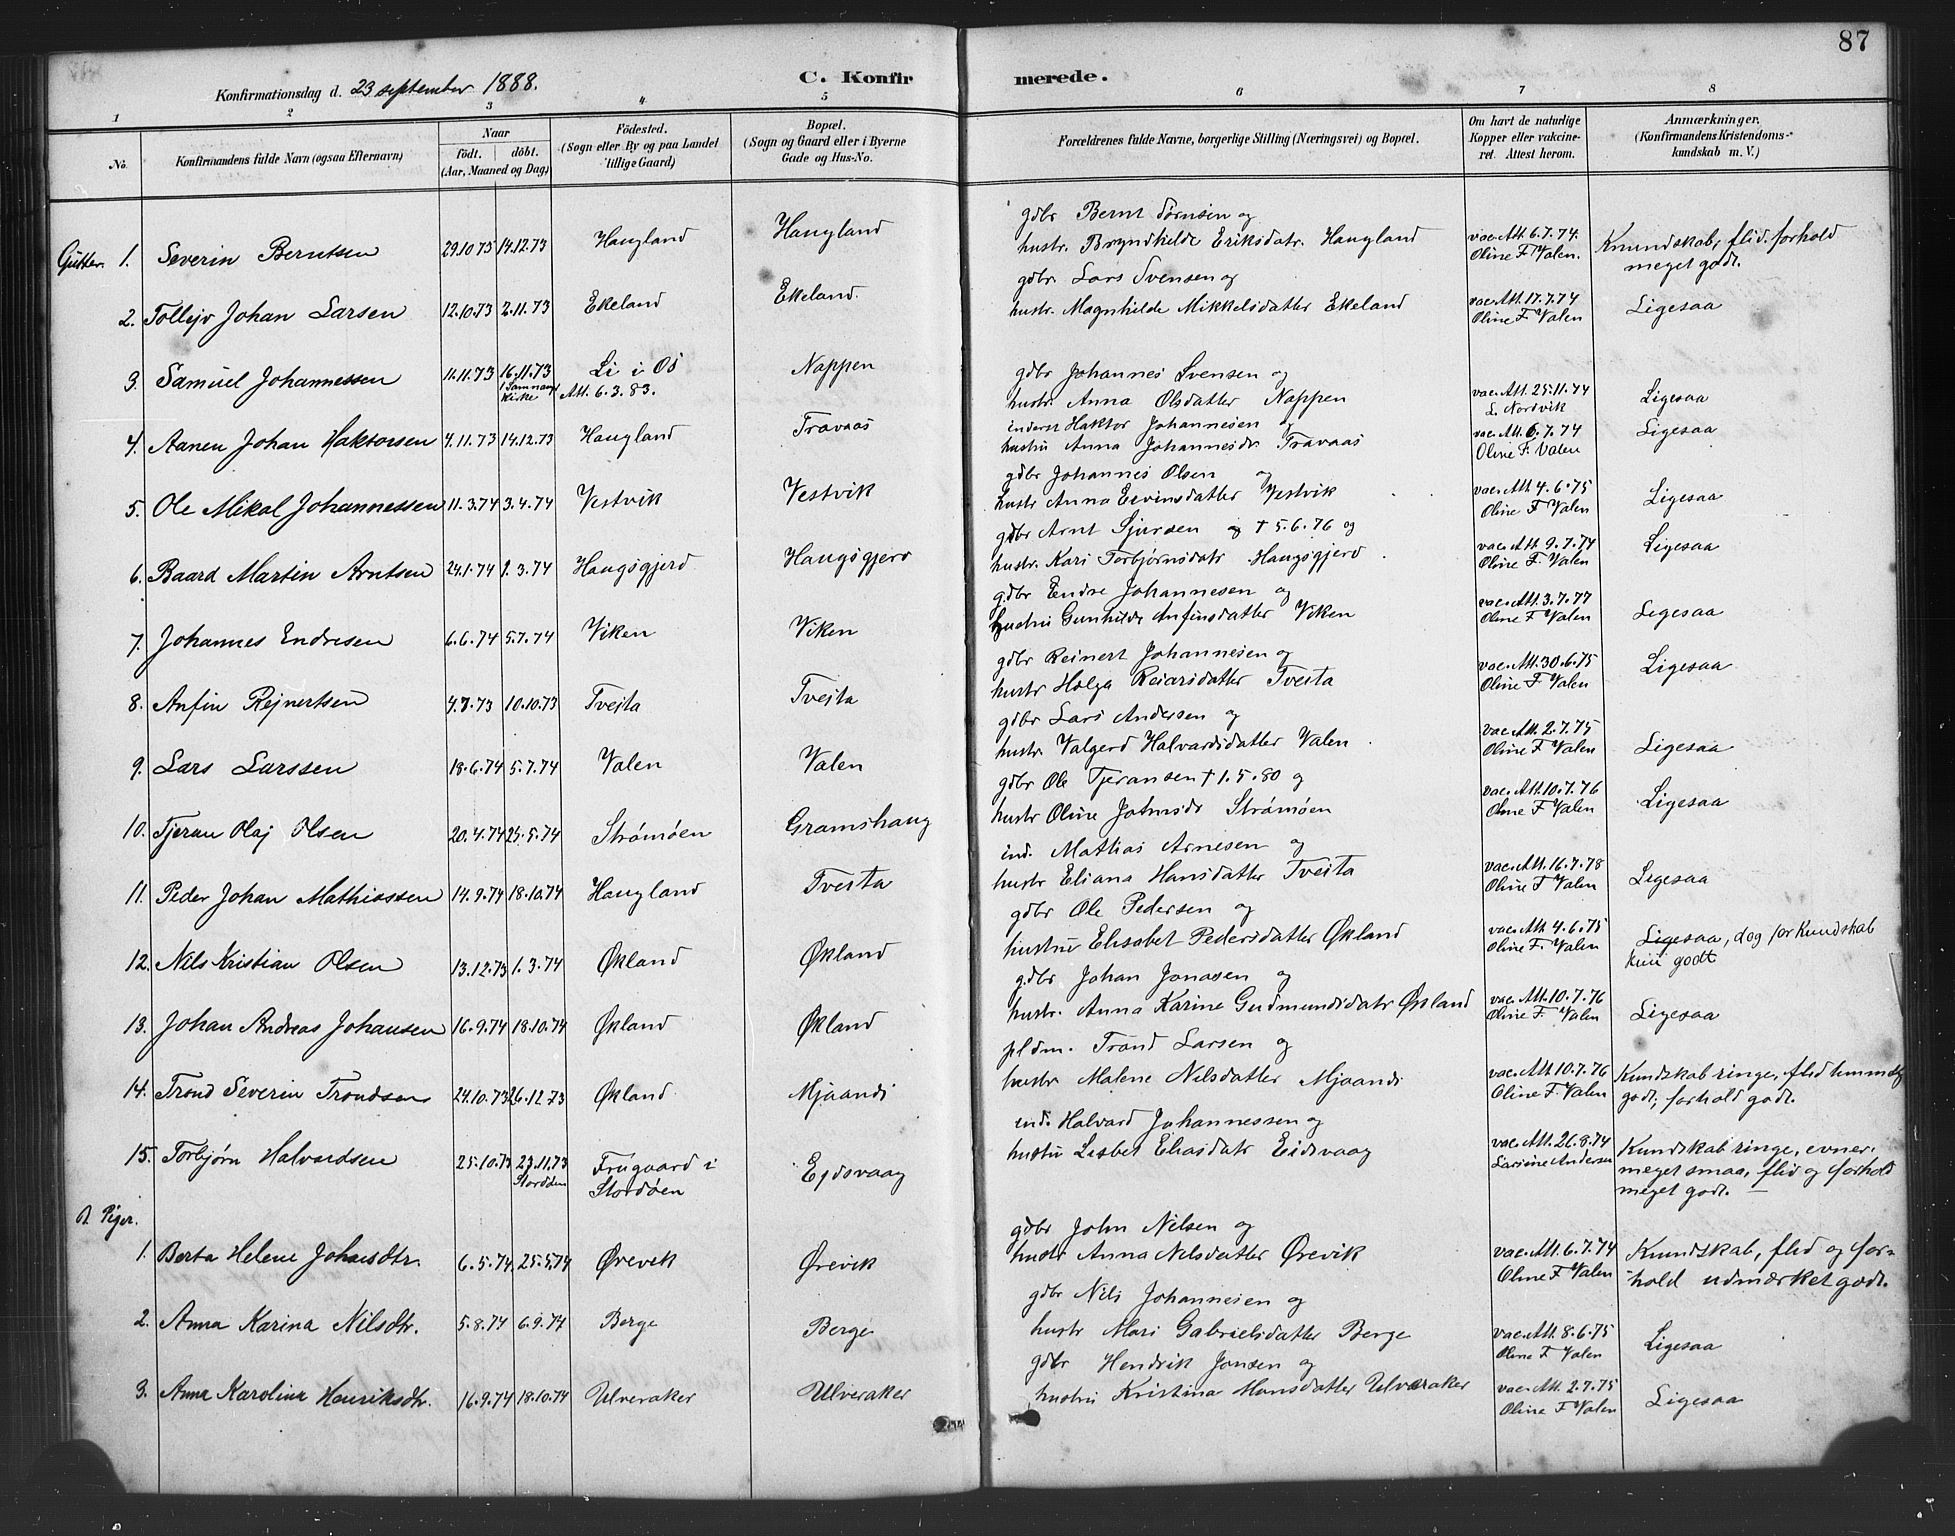 87
Konfirmationsdag d. 23 september 1888.
C. Konfirmerede.
1 2 3 4 5 6 7 8
No.
Konfirmandens fulde Navn (ogsaa Efternavn)
Naar
født. døbt.
(Aar, Maaned og Dag)
Fødested.
(Sogn eller By og paa Landet
tillige Gaard)
Bopæl.
(Sogn og Gaard eller i Byerne
Gade og Hus-No.
Forældrenes fulde Navne, borgerlige Stilling (Næringsvei) og Bopæl.
Om havt de naturlige
Kopper eller vakcine-
ret. Attest herom.
Anmærkninger.
(Konfirmandens Kristendoms-
kundskab m. V.)
Gutter. 1. Severin Berntsen 29.10.73 14.12.73 Haugland Haugland
gdbr Bernt og
hustr. Bryndhilde Eriksdatr. Haugland
vac. Att. 6.7.74.
Oline F. Valen.
Kundskab, flid. forhold
meget godt.
2. Tollejv Johan Larsen 12.10.73 2.11.73 Ekeland Ekeland.
gdbr. Lars Svensen og
hustr. Magnhilde Mikkelsdatter Ekeland
vac. Att. 17.7.74
Oline F. Valen
Ligesaa
3. Samuel Johannessen 11.11.73 16.11.73 i Samnang Kirke Li i Os Att. 6.3.83. Nappen
gdbr Johannes Svensen og
hustr. Anna Olsdatter Nappen
vac. Att. 25.11.74
L. Nordvik
Ligesaa
4. Aanen Johan Haktorsen 4.11.73 14.12.73 Haugland Travaas
inderst Haktor Johannesen og
hustru Anna Johannesdr Travaas
vac. Att. 6.7.74
Oline F. Valen
Ligesaa
5. Ole Mikal Johannessen 11.3.74 3.4.74 Vestvik Vestvik
gdbr Johannes Olsen og
hustr Anna Eivinsdatter Vestvik
vac. Att. 4.6.75
Oline F Valen
Ligesaa
6. Baard Martin Arntsen 24.1.74 1.3.74 Haugsgjerd Haugsgjerd
gdbr Arnt Sjursen og † 5.6.76 og
hustr. Kari Torbjørnsdatr Haugsgjerd
vac. Att. 9.7.74
Oline F. Valen
Ligesaa
7. Johannes Endresen 6.6.74 5.7.74 Viken Viken
gdbr Endre Johannesen og
hustru Gunhilde Anfinsdatter Viken
vac. Att. 3.7.77
Oline F Valen
Ligesaa
8. Anfin Rejnertsen 4.7.73 10.10.73 Tveita Tveita
gdbr Reinert Johannesen og
hustr Helga Reiarsdatter Tveita
vac. Att. 30.6.75
Oline F. Valen
Ligesaa
9. Lars Larssen 18.6.74 5.7.74 Valen Valen
gdbr Lars Andersen og
hustr Valgerd Halvardsdatter Valen
vac. Att. 2.7.75
Oline F Valen
Ligesaa
10. Tjeran Olaj Olsen 20.4.74 25.5.74 Strømøen Gramshaug
gdbr Ole Tjeransen † 1.5.80 og
hustr Oline Johnsdr Strømøen
vac. Att. 10.7.76
Oline F Valen
Ligesaa
11. Peder Johan Mathiassen 14.9.74 18.10.74 Haugland Tveita
ind. Mathias Arnesen og
hustr Eliana Hansdatter Tveita
vac. Att. 16.7.78
Oline F Valen
Ligesaa
12. Nils Kristian Olsen 13.12.73 1.3.74 Økland Økland
gdbr Ole Pedersen og
hustru Elisabet Pedersdatter Økland
vac. Att. 4.6.75
Oline F. Valen
Ligesaa, dog for Kundskab
kun godt
13. Johan Andreas Johansen 16.9.74 18.10.74 Økland Økland
gdbr Johan Jonasen og
hustr. Anna Karine Gudmundsdatr Økland
vac. Att. 10.7.76
Oline F. Valen
Ligesaa
14. Trond Severin Trondsen 24.10.73 26.12.73 Økland Mjaanes
pldm. Trond Larsen og
hustr Malene Nilsdatter Mjaanes
vac. Att. 10.7.76
Oline F. Valen
Kundskab ringe, flid temmelig
godt, forhold godt.
15. Torbjørn Halvardsen 25.10.73 23.11.73 Stordøen Frugaard i Stordøen Ejdsvaag
ind. Halvard Johannessen og
hustru Lisbet Eliasdatr Eidsvaag
vac. Att. 26.8.74
Larsine Andersen
Kundskab ringe, evner
meget smaa, flid og forhold
meget godt. —
Piger.
1. Berta Helene Johnsdtr. 6.5.74 25.5.74 Ørevik Ørevik
gdbr John Nilsen og
hustr Anna Nilsdatter Ørevik
vac. Att. 6.7.74
Oline F Valen
Kundskab, flid og for-
hold udmærket godt.
2. Anna Karina Nilsdtr. 5.8.74 6.9.74 Berge Berge
gdbr Nils Johannesen og
hustr Mari Gabrielsdatter Berge
vac. Att. 8.6.75
Oline F Valen
Ligesaa
3. Anna Karolina Henriksdtr. 16.9.74 18.10.74 Ulveraker Ulveraker
gdbr Hendrik Jonsen og
hustru Kristina Hansdatter Ulveraker
vac. Att. 2.7.75
Oline F Valen
Ligesaa